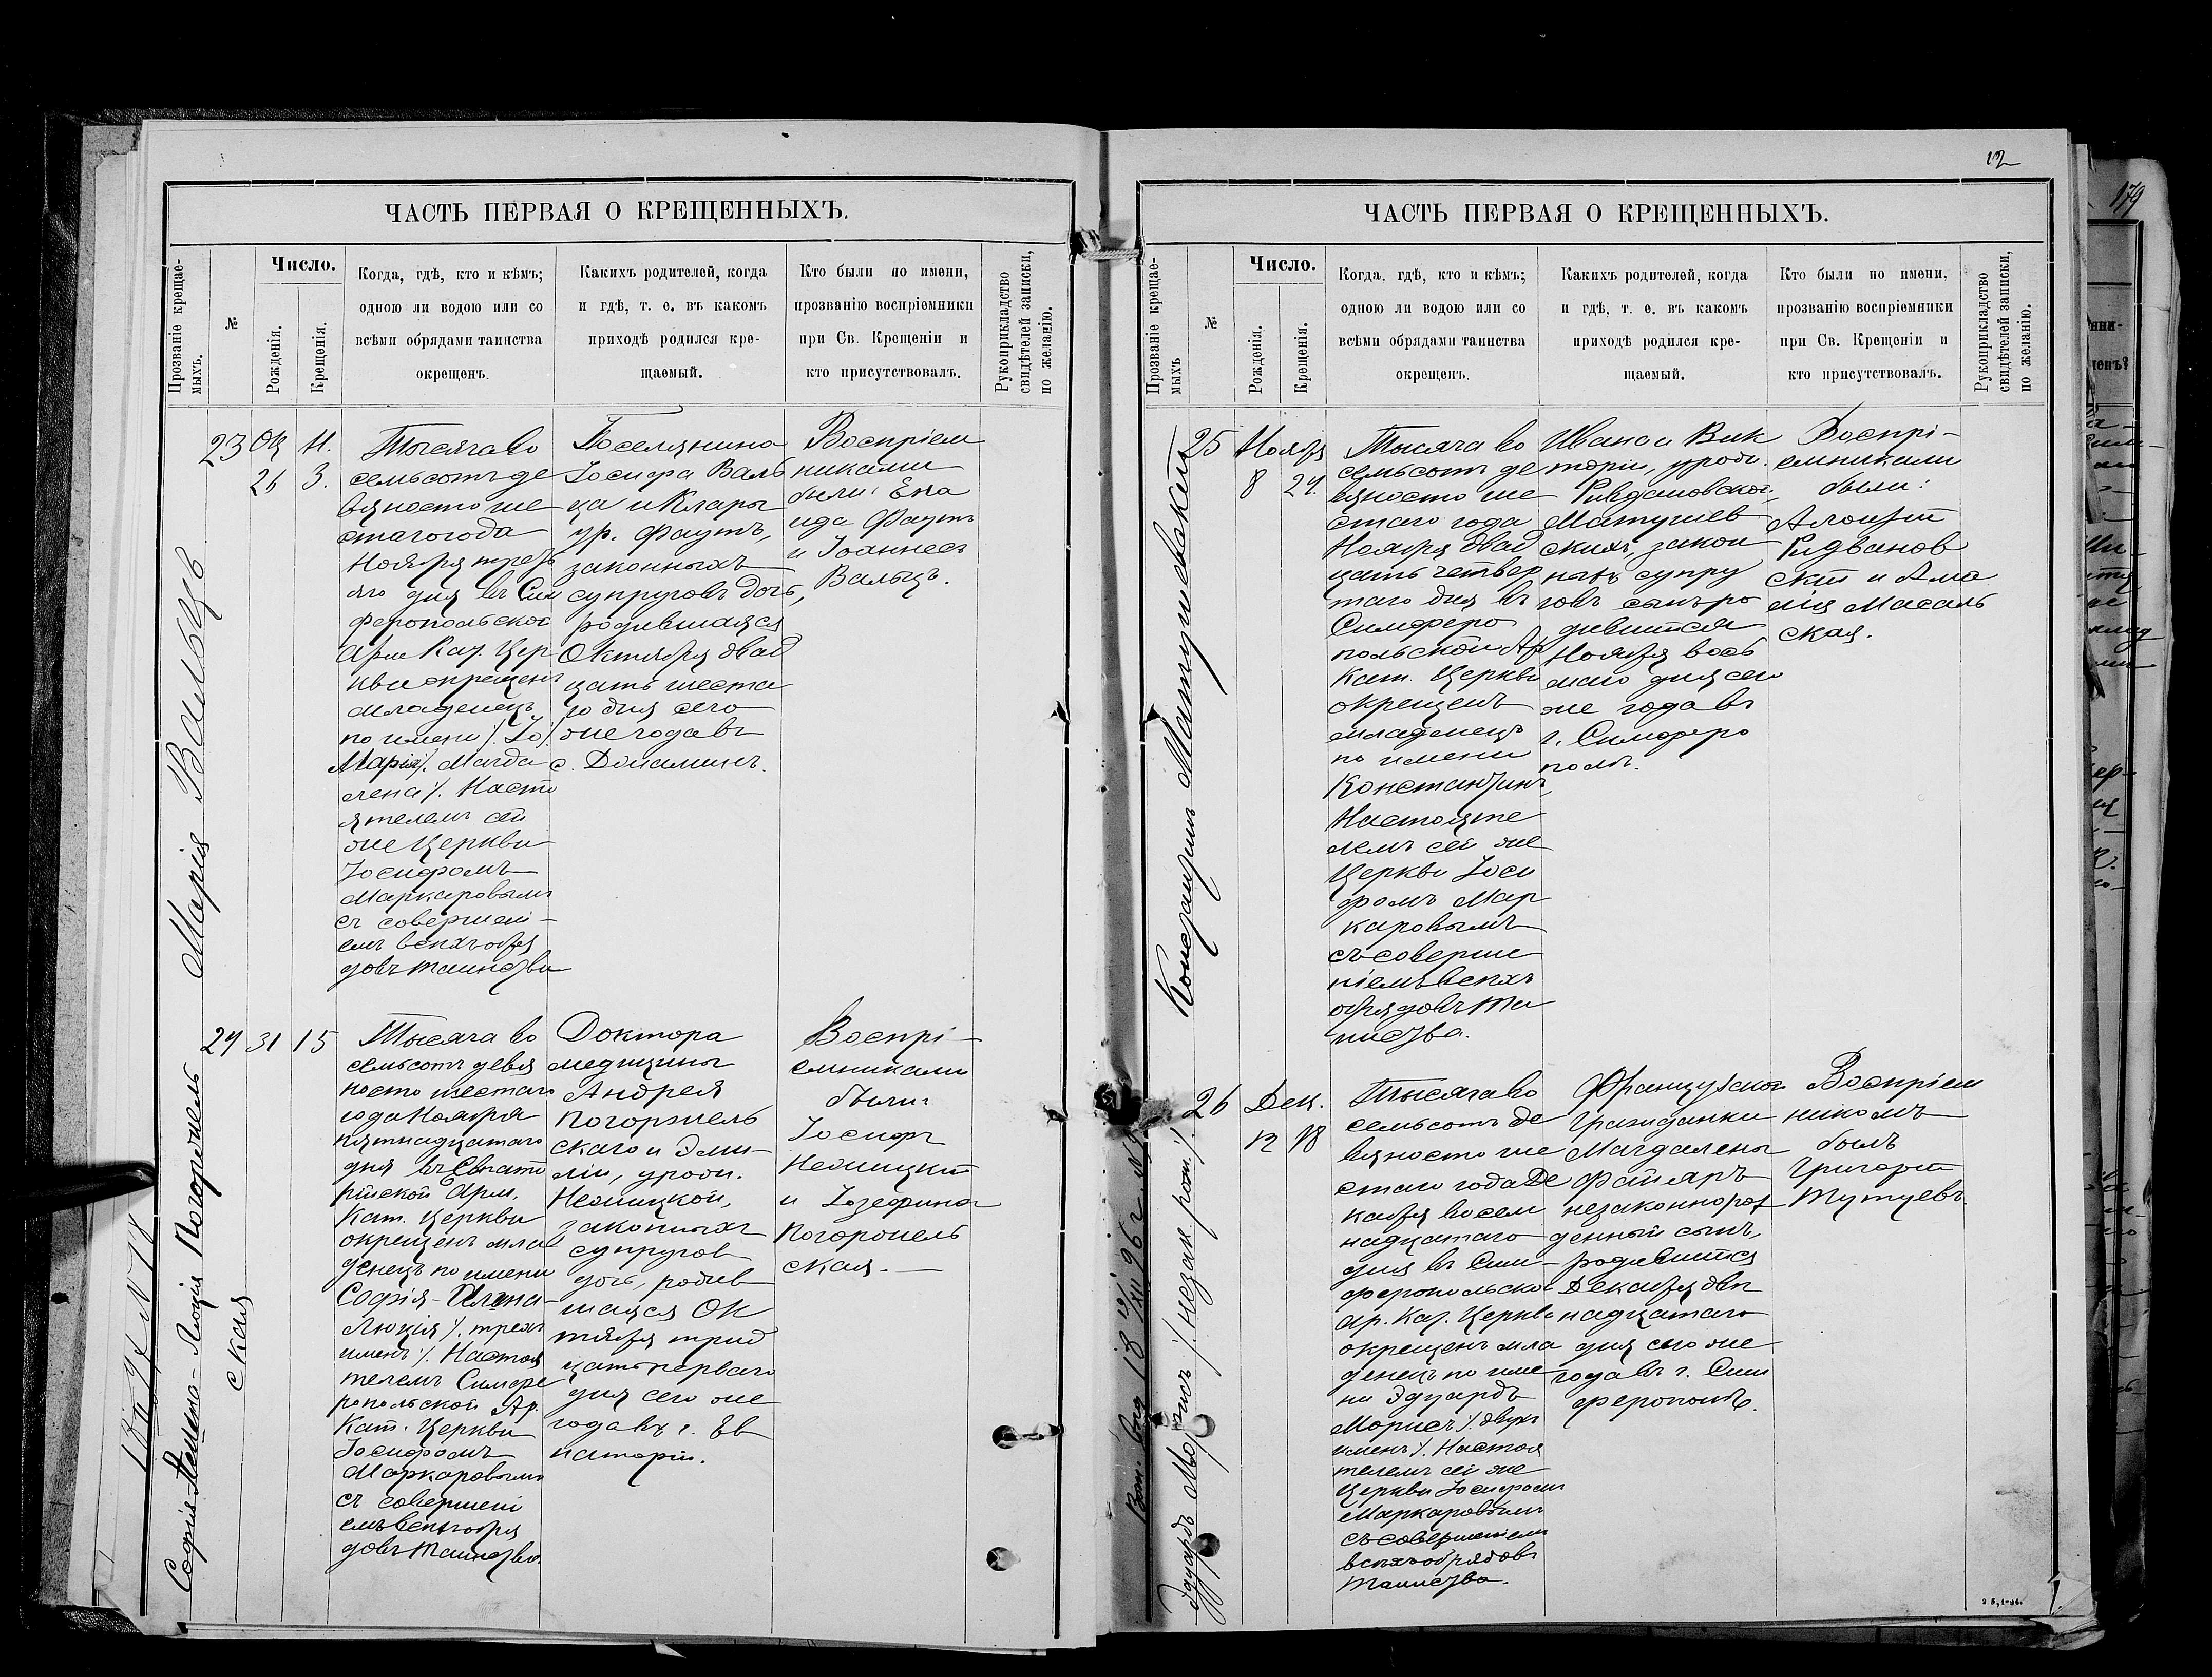 ЧАСТЬ ПЕРВАЯ О КРЕЩЕННЫХЪ.
Прозваніе крещае-
мыхъ.
№
Число.
Рожденія.
Крещенія.
Когда, гдѣ, кто и кѣмъ;
одною ли водою или со
всѣми обрядами таинства
окрещенъ.
Какихъ родителей, когда
и гдѣ, т. е. въ какомъ
приходѣ родился кре-
щаемый.
Кто были по имени,
прозванію воспріемники
при Св. Крещеніи и
кто присутствовалъ.
Рукоприкладство
свидѣтелей записки,
по желанію.
Марія Вальцъ
23
Ок
26
Н.
3.
Тысяча во
семьсотъ де
вяносто ше
стаго года
Ноября треть
яго дня въ Сим
феропольской
Арм Кат. Цер
кви окрещенъ
младенецъ
по имени
Марія ٪. Магда
лена ٪. Насто
ятелемъ сей
же Церкви
Іосифомъ
Маркаровымъ
съ совершені-
емъ всѣхъ обря
довъ таинства
Поселянина
Іосифа Валь
ца и Клары
ур. Фаутъ,
законныхъ
супруговъ дочь,
родившаяся
Октября двад
цать шеста
го дня сего
же года въ
с.
Воспріем
никами
были:
Фаутъ
и Іоаннесъ
Вальцъ.
Софія Погоржель
ская
24
31
15
Тысяча во
семьсотъ девя
носто шестаго
года Ноября
пятнадцатаго
дня въ Евпато
рійской Арм.
Кат. Церкви
окрещенъ мла
денецъ по имени
Софія-
Люція ٪. трехъ
именъ ٪. Настоя
телемъ Симфе
ропольской Ар.
Кат. Церкви
Іосифомъ
Маркаровымъ
съ совершені
емъ всѣхъ обря
довъ таинства.
Доктора
медицины
Андрея
Погоржель
скаго и Эми-
ліи, урожд.
законныхъ
супруговъ
дочь, родив
шаяся Ок
тября трид
цать перваго
дня сего же
года въ г. Ев
паторіи.
Воспрі-
емниками
были:
Іосифъ
и Іозефина
Погоржель
ская.
12
ЧАСТЬ ПЕРВАЯ О КРЕЩЕННЫХЪ.
Прозваніе крещае-
мыхъ
№
Число.
Рожденія.
Крещенія.
Когда, гдѣ, кто и кѣмъ;
одною ли водою или со
всѣми обрядами таинства
окрещенъ.
Какихъ родителей, когда
и гдѣ, т. е. въ какомъ
приходѣ родился кре-
щаемый.
Кто были по имени,
прозванію воспріемники
при Св. Крещеніи и
кто присутствовалъ.
Рукоприкладство
свидѣтелей записки,
по желанію.
Константинъ Матушевскій
25
Ноября
8
24.
Тысяча во
семьсотъ де
вяносто ше
стаго года
Ноября двад
цать четвер
таго дня въ
Симферо
польской Ар
Кат. Церкви
окрещенъ
младенецъ
по имени
Константинъ,
Настояте
лемъ сей же
Церкви Іоси
фомъ Мар
каровымъ
съ соверше
ніемъ всѣхъ
обрядовъ Та
инства.
Ивана и Вик
торіи, урожд.
Матушев
скихъ, закон
ныхъ супру
говъ сынъ ро
дившійся
Ноября вось
маго дня сего
же года въ
г. Симферо
полѣ.
Воспрі-
емниками
были:
Алоизій
Ридванов
скій и Ама
лія Масаль
ская.
Эдуардъ Морисъ ٪ незак рож. ٪
26
Дек.
12
18
Тысяча во
семьсотъ де
вяносто ше
стаго года Де
кабря восем
надцатаго
дня въ Сим-
феропольской
Ар. Кат. Церкви
окрещенъ мла
денецъ по име
ни Эдуардъ
Морисъ ٪. двухъ
именъ ٪. Настоя
телемъ сей же
Церкви Іосифомъ
Маркаровымъ
съ совершеніемъ
всѣхъ обрядовъ
таинства.
Французской
Гражданки
Магдалены
незаконнорож
денный сынъ,
родившійся
Декабря двѣ
надцатаго
дня сего же
года въ г. Сим
ферополѣ.
Воспріем
никомъ
былъ
Григорій
Тутуевъ.
179